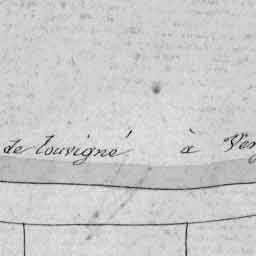 de Louvigné à Ver